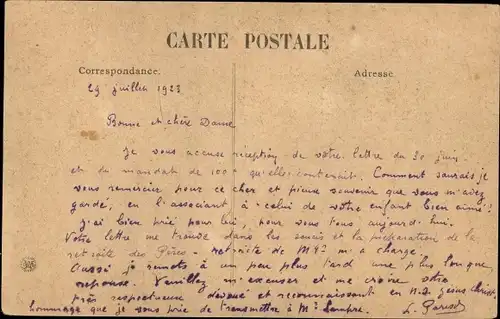 CARTE POSTALE
Correspondance.
Adresse.
29 juillet 1923
Bonne et chère Dame
Je vous accuse réception de votre lettre du 30 juin
et du mandat de 100f qu'elle contenait. Comment saurais je
vous remercier pour ce cher et pieux souvenir que vous m'avez
gardé, en l'associant à celui de votre enfant bien aimé!
j'ai bien prié pour lui, pour vous tous aujourd'hui.
Votre lettre me trouve dans les soucis et la préparation de la
retraite des Pères - retraite de m'a chargé.
Aussi je remets à un peu plus tard une plus longue
réponse. Veuillez m'excuser et me croire votre
très respectueux dévoué et reconnaissant en N.S. Jésus Christ
hommage que je vous prie de transmettre à Mr
L.